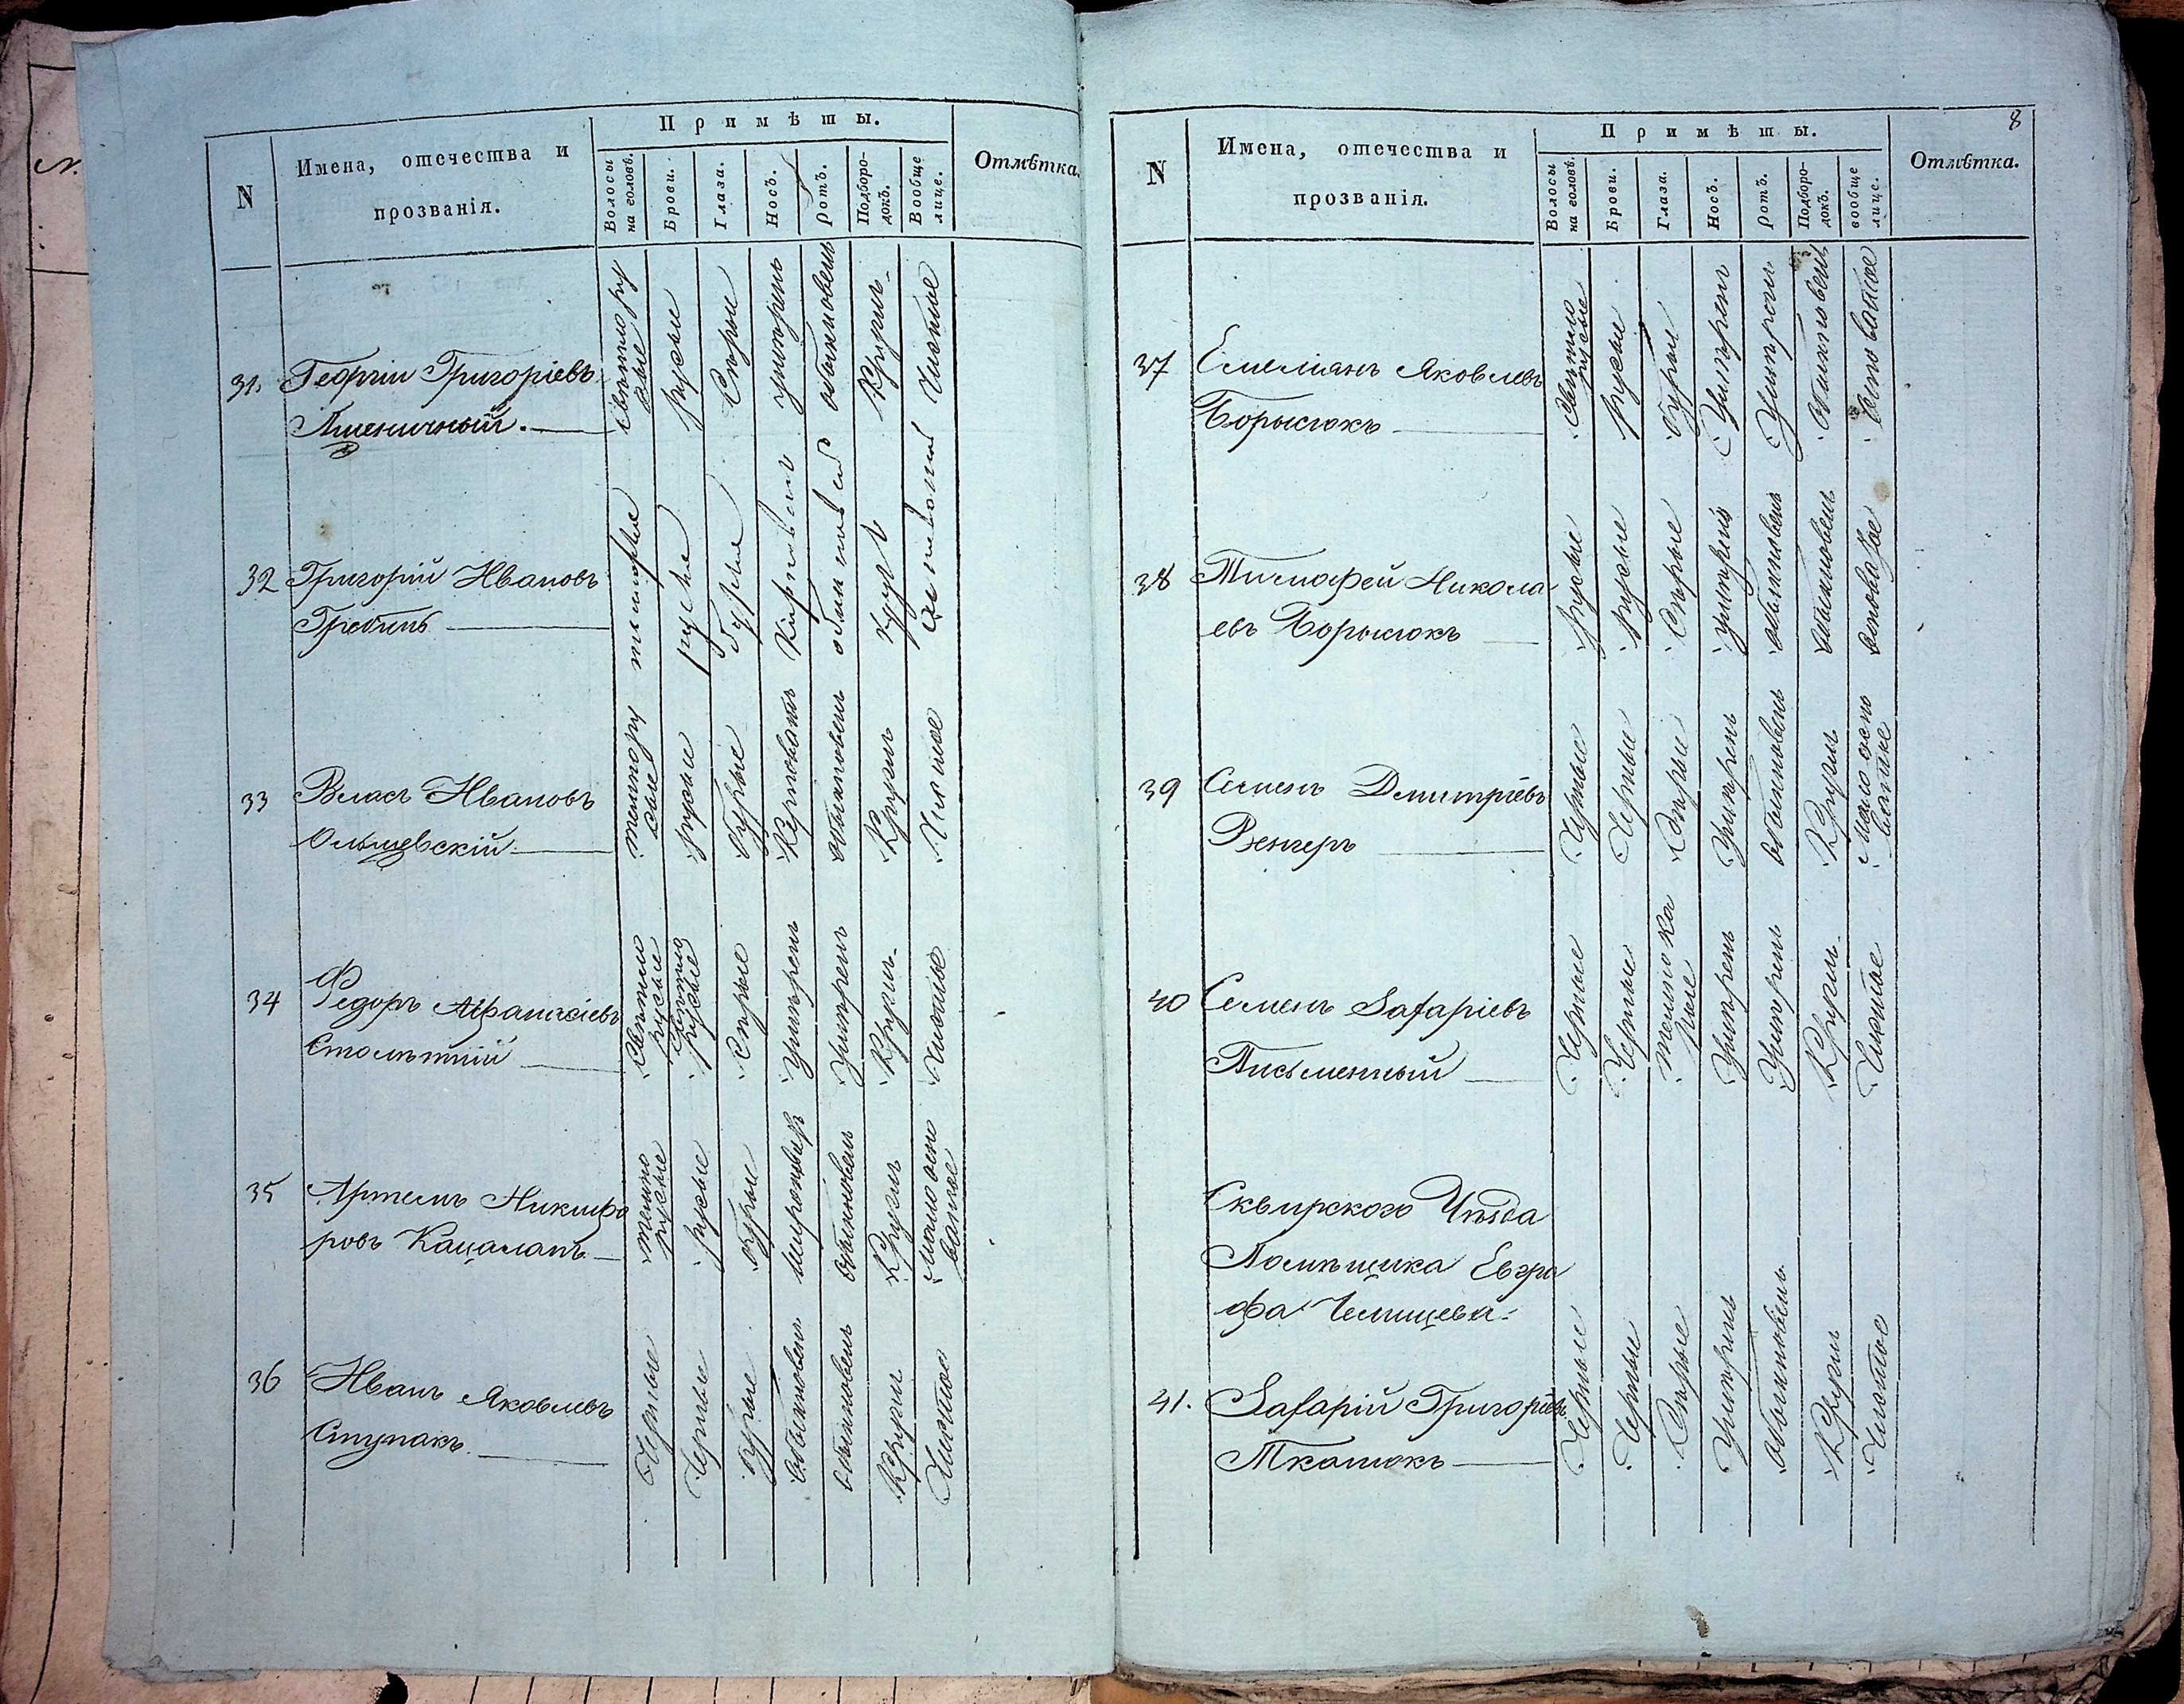 N
Имена, отечества и
прозванія.
Примѣты.
Волосы на головѣ.
Брови.
Глаза.
Носъ.
Ротъ.
Подборо-
докъ.
Вообще
лице.
Отмѣтка.
31. Георгій Григоріевъ
Пшеничный.
свѣтлору
сые
русыи
Сѣрыи
умѣренъ
обыкновенъ
Кругл.
Чистое
32 Григорій Ивановъ
Гребинь
темнорусые
русые
бурые
обыкновен
кругл
33 Власъ Ивановъ
Ольшевскій
темнору
сые
русыи
бурые
обыкновенъ
Кругл
Чистое
34 Федоръ Афанасіевъ
Столѣтній
свѣтло
русые
свѣтло
русые
Сѣрые
Умѣренъ
Умѣренъ
Кругл.
Чистое
35 Артемъ Никифо
ровъ Кацапапъ
темно
русые
русые
бурые
обыкновенъ
Кругл
мало осно
ватое
36 Иванъ Яковлевъ
Ступакъ.
Черные
Черные
бурые
обыкновенъ
обыкновенъ
Кругл
Чистое
8
N
Имена, отечества и
прозванія.
Примѣты.
Волосы на головѣ.
Брови.
Глаза.
Носъ.
Ротъ.
Подборо-
докъ.
вообще
лице.
Отмѣтка.
37 Емеліянъ Яковлевъ
Борысюкъ
Свѣтло
русые
русыи
бурыи
Умѣренъ
Умѣренъ
обыкновенъ
осповатое
38 Тимофей Никола
евъ Борысюкъ
русые
русые
Сѣрые
умѣренъ
обыкновенъ
обыкновенъ
осповатое
39 Семенъ Димитріевъ
Венгеръ
Черные
Черные
Сѣрые
Умѣренъ
обыкновенъ
Кругл
Мало осно
ватое
40 Семенъ Захаріевъ
Письменный
Черные
Черные
темно ка
рие
Умѣренъ
Умѣренъ
Кругл.
Чистое
Сквирского Уѣзда
Помѣщика Евгра
фа Челищева.
41. Захарій Григоріевъ
Ткатюкъ
Черные
Черные
Сѣрые
Умѣренъ
обыкновенъ
Кругл
Чистое